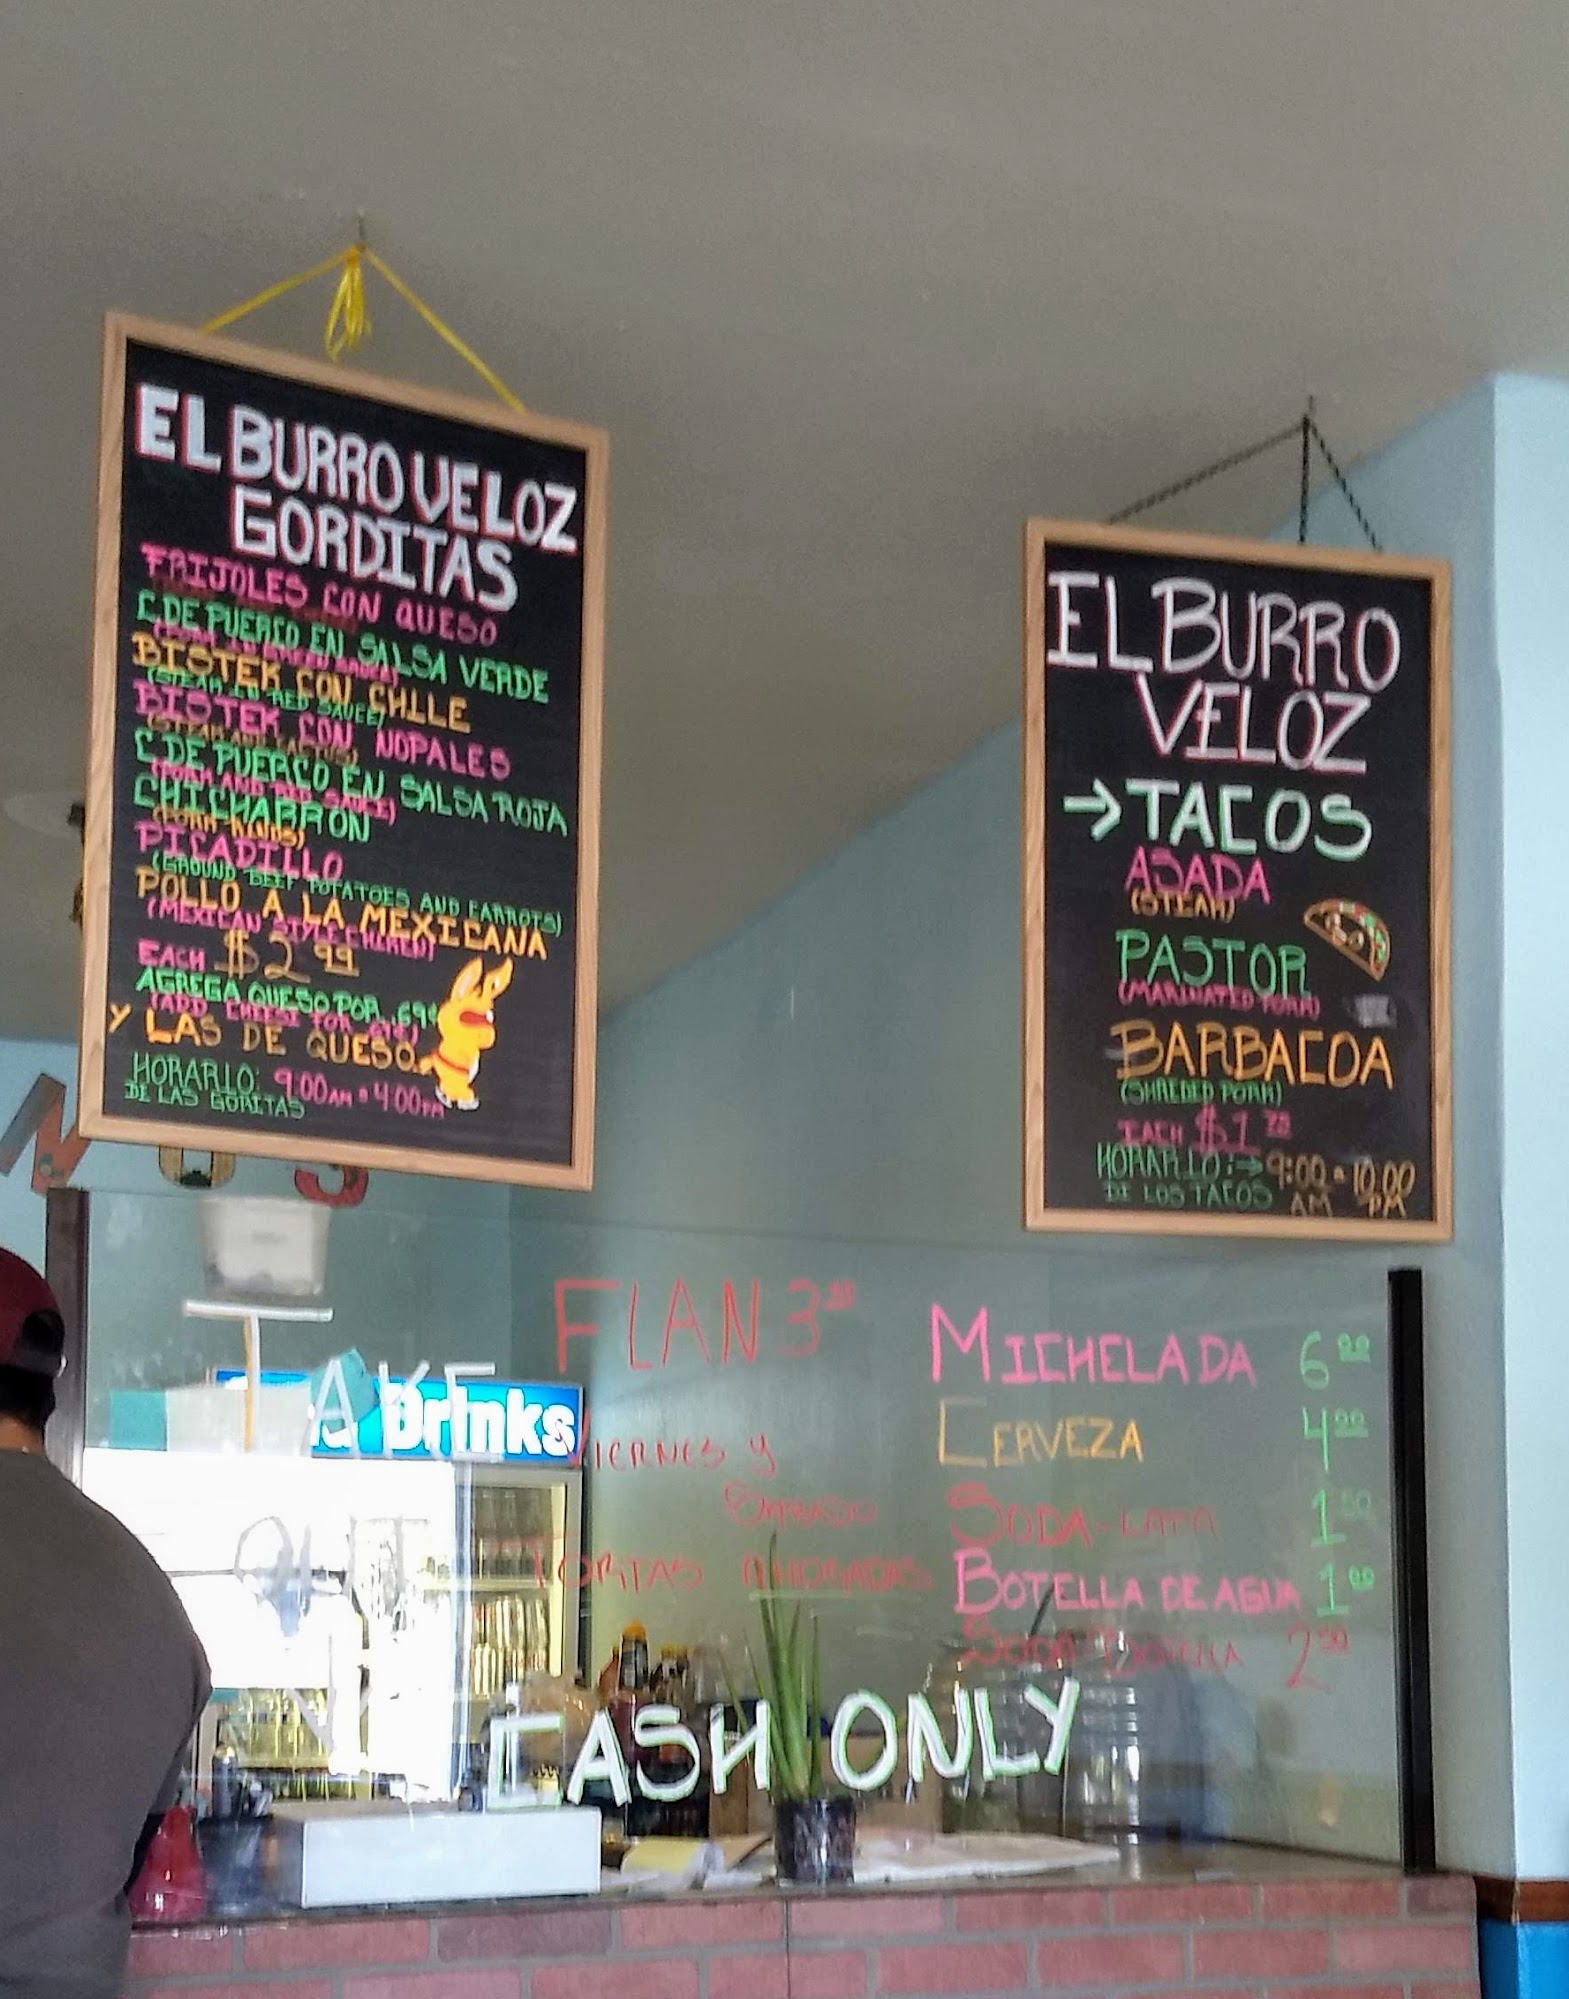 EL BURRO VELOZ
GORDITAS
FRIJOLES CON QUESO
C.DE PUERCO EN SALSA VERDE
(PORK IN GREEN SAUCE)
BISTEK CON CHILE
(STEAK IN RED SAUCE)
BISTEK CON NOPALES
(STEAK AND CACTUS)
C.DE PUERCO EN SALSA ROJA
(PORK AND RED SAUCE)
CHICHARRON
(PORK RINDS)
PICADILLO
(GROUND BEEF POTATOES AND CARROTS)
POLLO A LA MEXICANA
(MEXICAN STYLE CHICKEN)
EACH $2.99
AGREGA QUESO POR .69¢
(ADD CHEESE FOR .69¢)
Y LAS DE QUESO.
HORARIO: 9:00AM a 4:00PM
DE LAS GORITAS
EL BURRO
VELOZ
→TACOS
ASADA
(STEAK)
PASTOR
(MARINATED PORK)
BARBACOA
(SHREDED PORK)
EACH $1.75
HORARIO:→9:00 a 10:00
DE LOS TACOS AM PM
TAKE
Drinks
FLAN 3.50
VIERNES Y
SABADO
TORTAS AHOGADAS
MICHELADA 6.00
CERVEZA 4.00
SODA-LATA 1.50
BOTELLA DE AGUA 1.00
SODA BOTELLA 2.50
CASH ONLY